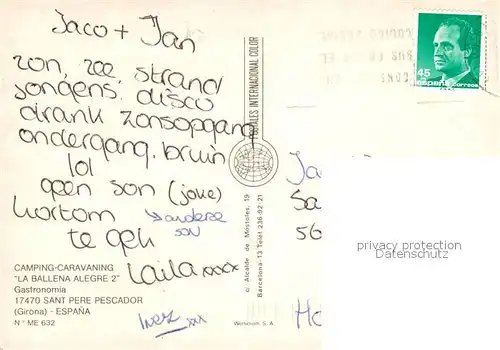 Jaco + Jan
zon, zee, strand
jongens, disco
drank zonsopgang
ondergang, bruin
lol
geen son (joke)
kortom → andere son
te gek
Laila xxxx
Inez xxx
CAMPING-CARAVANING
"LA BALLENA ALEGRE 2"
Gastronomia
17470 SANT PERE PESCADOR
(Girona) - ESPAÑA
N° ME 632
POSTALES INTERNACIONAL COLOR
c/ Alcalde de Móstoles, 19
Barcelona-13 Telef. 236-92-21
Wersicrom S. A.
45
España correos
Ja
Sa
56
Ho
privacy protection
Datenschutz